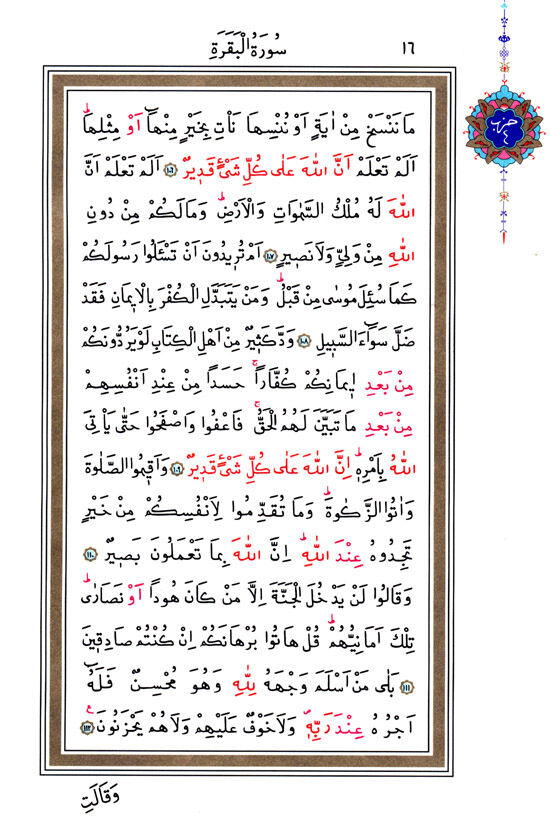 ١٦
سُورَةُ الْبَقَرَةِ
حزب
٤
مَا نَنْسَخْ مِنْ اٰيَةٍ اَوْ نُنْسِهَا نَأْتِ بِخَيْرٍ مِنْهَٓا اَوْ مِثْلِهَاۜ
اَلَمْ تَعْلَمْ اَنَّ اللّٰهَ عَلٰى كُلِّ شَيْءٍ قَد۪يرٌ ﴿١٠٦﴾ اَلَمْ تَعْلَمْ اَنَّ
اللّٰهَ لَهُ مُلْكُ السَّمٰوَاتِ وَالْاَرْضِۜ وَمَا لَكُمْ مِنْ دُونِ
اللّٰهِ مِنْ وَلِيٍّ وَلَا نَص۪يرٍ ﴿١٠٧﴾ اَمْ تُر۪يدُونَ اَنْ تَسْـَٔلُوا رَسُولَكُمْ
كَمَا سُئِلَ مُوسٰى مِنْ قَبْلُۜ وَمَنْ يَتَبَدَّلِ الْكُفْرَ بِالْا۪يمَانِ فَقَدْ
ضَلَّ سَوَٓاءَ السَّب۪يلِ ﴿١٠٨﴾ وَدَّ كَث۪يرٌ مِنْ اَهْلِ الْكِتَابِ لَوْ يَرُدُّونَكُمْ
مِنْ بَعْدِ ا۪يمَانِكُمْ كُفَّاراًۚ حَسَداً مِنْ عِنْدِ اَنْفُسِهِمْ
مِنْ بَعْدِ مَا تَبَيَّنَ لَهُمُ الْحَقُّۚ فَاعْفُوا وَاصْفَحُوا حَتّٰى يَأْتِيَ
اللّٰهُ بِاَمْرِه۪ۜ اِنَّ اللّٰهَ عَلٰى كُلِّ شَيْءٍ قَد۪يرٌ ﴿١٠٩﴾ وَاَق۪يمُوا الصَّلٰوةَ
وَاٰتُوا الزَّكٰوةَۜ وَمَا تُقَدِّمُوا لِاَنْفُسِكُمْ مِنْ خَيْرٍ
تَجِدُوهُ عِنْدَ اللّٰهِۜ اِنَّ اللّٰهَ بِمَا تَعْمَلُونَ بَص۪يرٌ ﴿١١٠﴾
وَقَالُوا لَنْ يَدْخُلَ الْجَنَّةَ اِلَّا مَنْ كَانَ هُوداً اَوْ نَصَارٰىۜ
تِلْكَ اَمَانِيُّهُمْۜ قُلْ هَاتُوا بُرْهَانَكُمْ اِنْ كُنْتُمْ صَادِق۪ينَ
﴿١١١﴾ بَلٰى مَنْ اَسْلَمَ وَجْهَهُ لِلّٰهِ وَهُوَ مُحْسِنٌ فَلَهُٓ
اَجْرُهُ عِنْدَ رَبِّه۪ۖ وَلَا خَوْفٌ عَلَيْهِمْ وَلَا هُمْ يَحْزَنُونَ۟ ﴿١١٢﴾
وَقَالَتِ